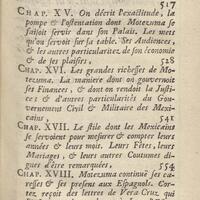 517
CHAP. XV. On décrit l'exactitude, la
pompe & l'ostentation dont Motezuma se
faisoit servir dans son Palais. Les mets
qu'on servoit sur sa table. Ses Audiences,
& les autres particularitez de son économie
& de ses plaisirs, 528
CHAP. XVI. Les grandes richesses de Mo-
tezuma. La maniere dont on gouvernoit
ses Finances, & dont on rendoit la Justi-
ce & d'autres particularités du Gou-
vernement Civil & Militaire des Mexi-
cains, 541
CHAP. XVII. Le stile dont les Mexicains
se servoient pour mesurer & compter leurs
années & leurs mois. Leurs Fêtes, leurs
Mariages, & leurs autres Coutumes di-
gnes d'être remarquées, 554
CHAP. XVIII. Motezuma continuë ses ca-
resses & ses presens aux Espagnols. Cor-
tez reçoit des lettres de Vera Cruz, qui